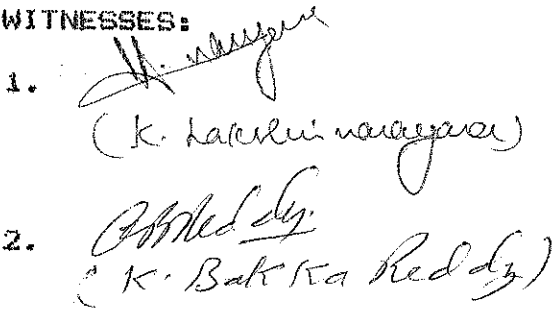 WITNESSES:
1.
(K. Lakshminarayana)
2. Reddy.
(K. Bakka Reddy)